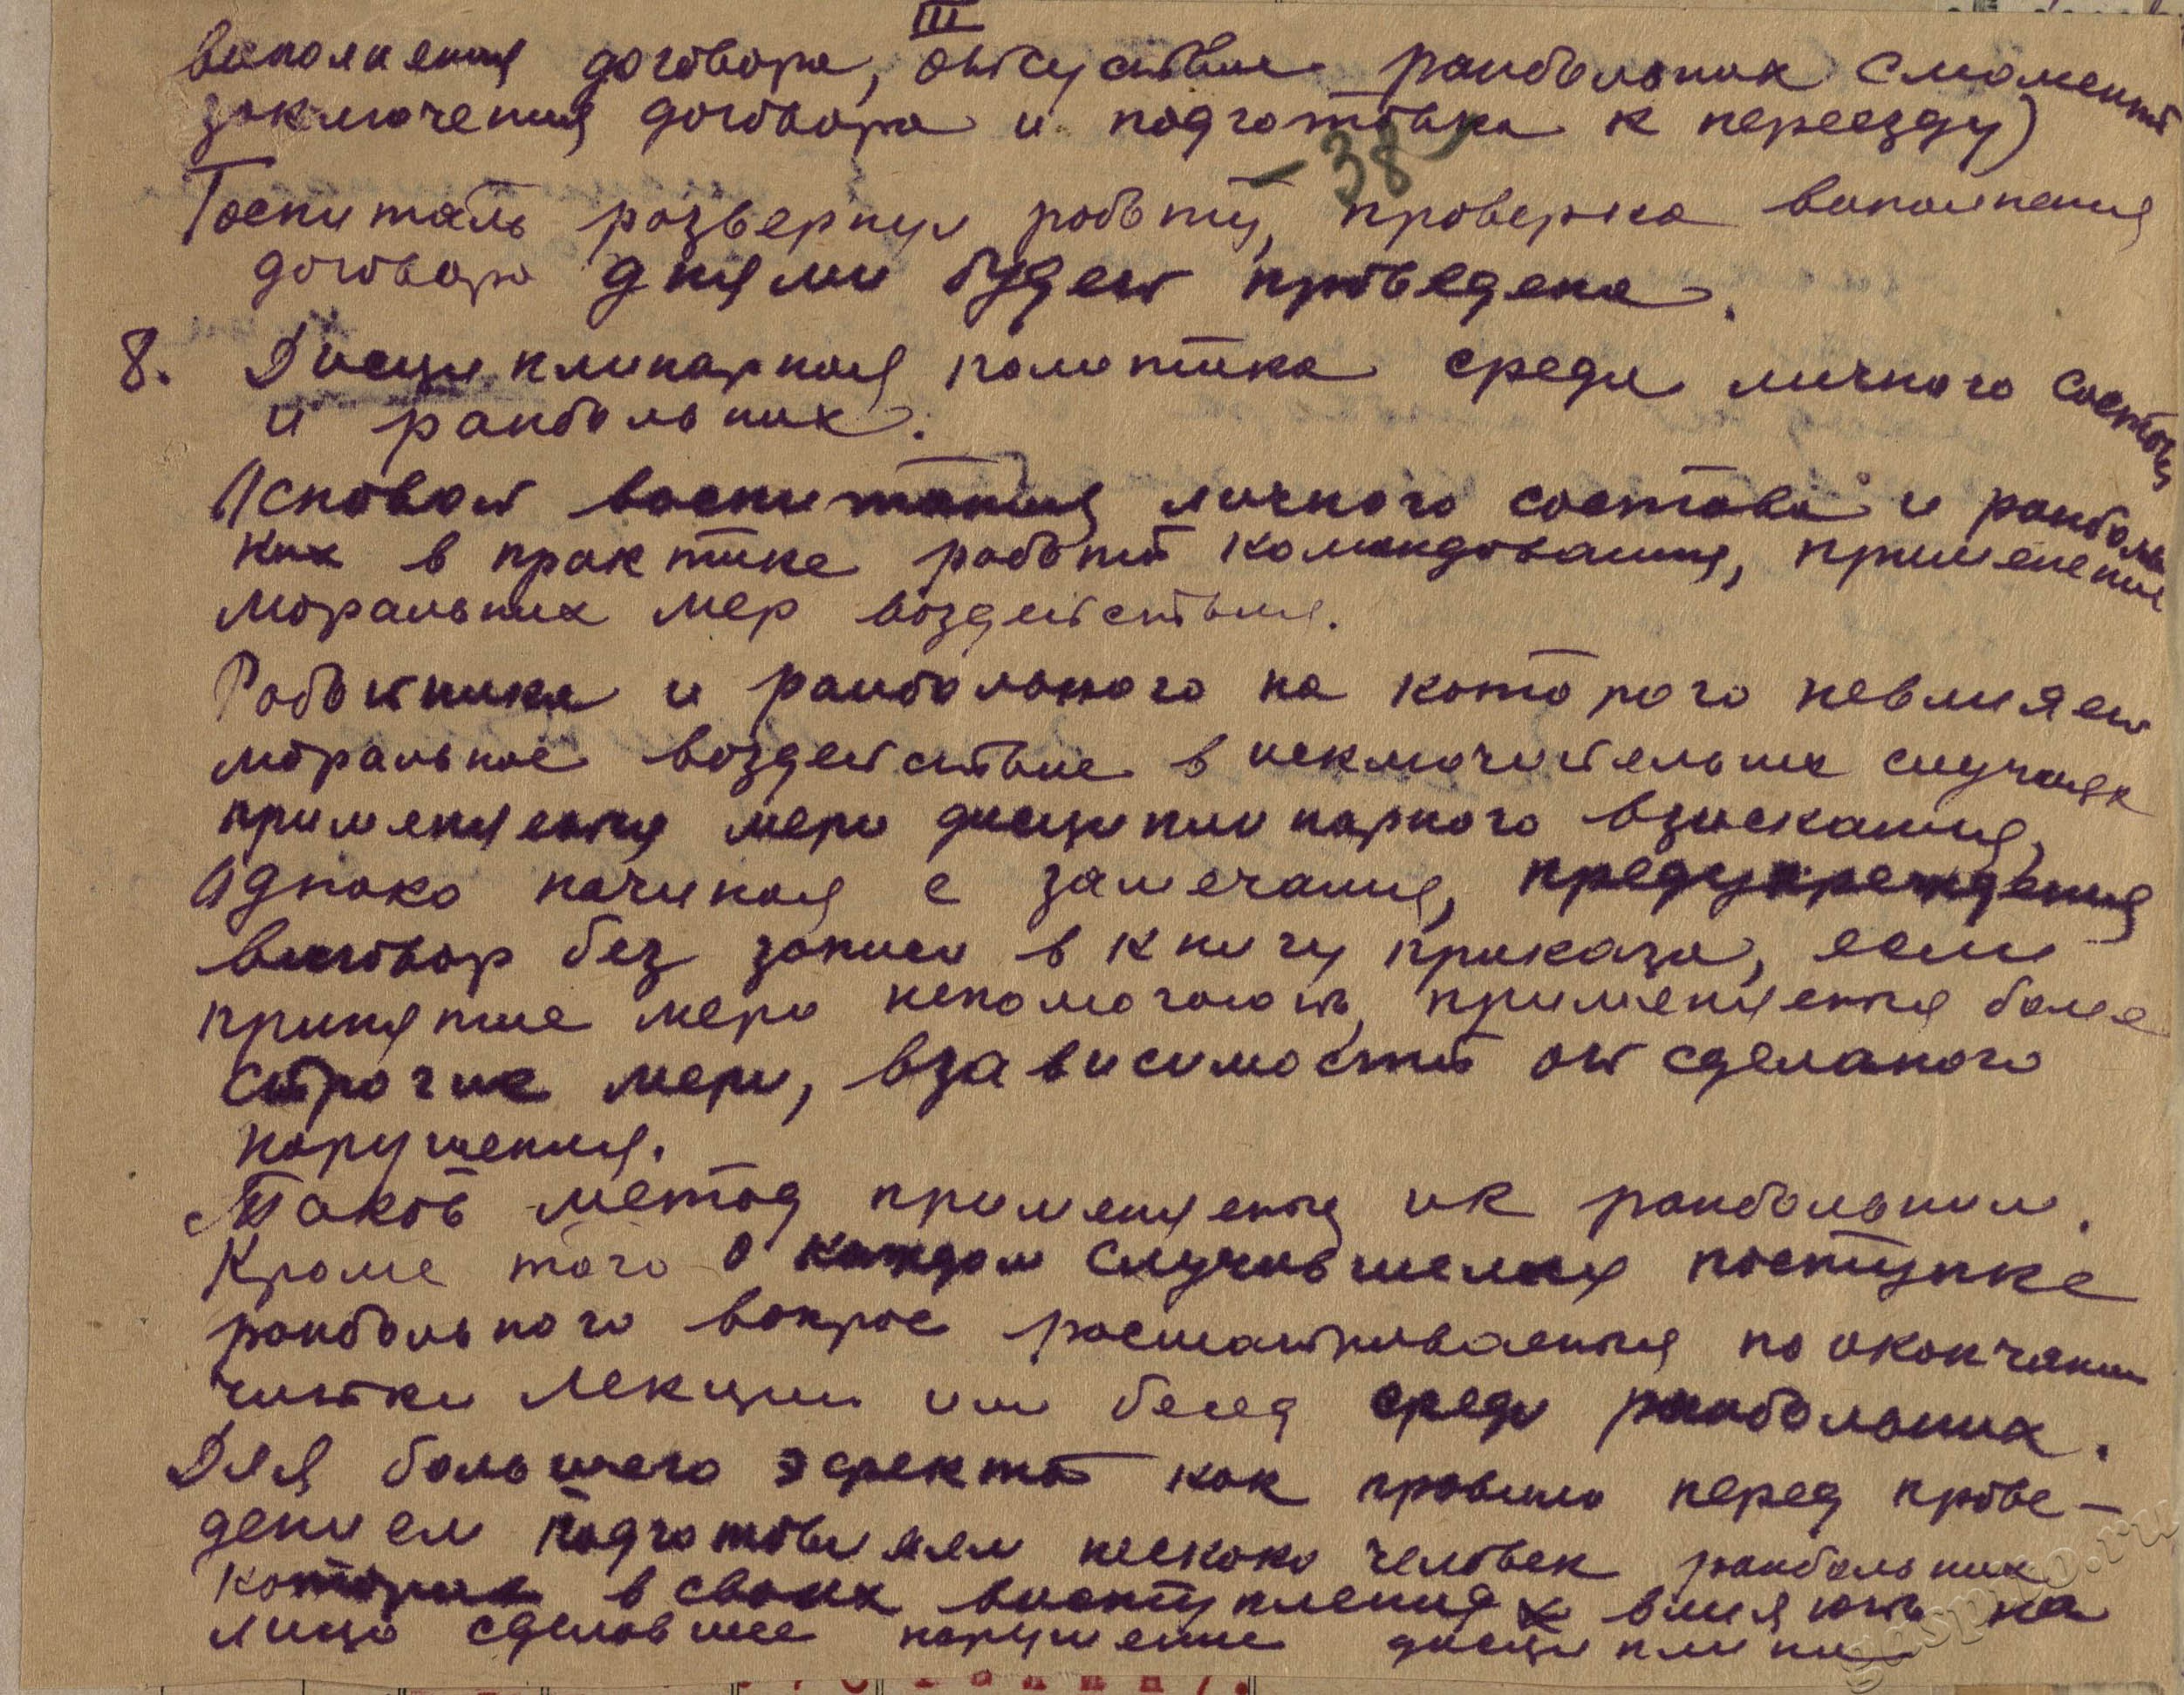 III
выполнения договора, отсуствие ранбольных с момента
заключения договора и подготовка к переезду)
-38-
Госпиталь развернул работу, проверка выполнения
договора днями будет проведена.
8. Дисциплинарная политика среди личного состава
и ранбольных.
Основой воспитания личного состава и ранболь
ных в практике работы командования, применение
моральных мер воздействия.
Работника и ранбольного на которого невлияет
моральное воздействие в исключительных случаях
применяется меры дисциплинарного взыскания,
Однако начиная с замечания, предупреждения
выговор без записи в книгу приказа, если
принятые меры непомогают, применяется более
строгие меры, взависимости от сделаного
нарушения.
Таков метод применяется ик ранбольным.
Кроме того о каждом случившемся поступке
ранбольного вопрос расматривается по окончании
читки лекции или бесед среди ранбольных.
Для большего эфекта как правило перед прове-
дением подготовляем несколко человек ранбольных
которые в своих выступлениях влияют на
лицо сделавшее нарушение дисциплины
gaspiko.ru